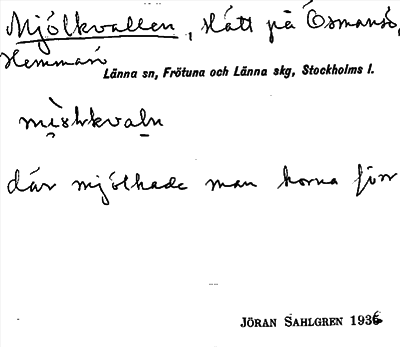 Mjölkvallen, slått på Ösmansö,
Hemman
Länna sn, Frötuna och Länna skg, Stockholms l.
där mjölkade man korna förr
JÖRAN SAHLGREN 1936